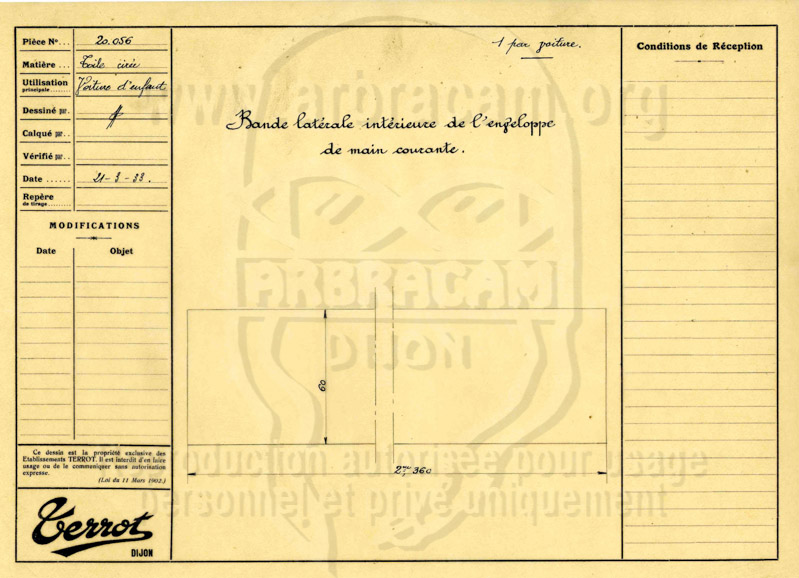 Pièce Nº... 20.056
Matière... Toile cirée
Utilisation
principale...... Voiture d'enfant
Dessiné par.
Calqué par..
Vérifié par..
Date ...... 21-3-33.
Repère
de tirage.........
MODIFICATIONS
Date Objet
Ce dessin est la propriété exclusive des
Etablissements TERROT. Il est interdit d'en faire
usage ou de le communiquer sans autorisation
expresse.
(Loi du 11 Mars 1902.)
Terrot
DIJON
1 par voiture.
Bande latérale intérieure de l'enveloppe
de main courante.
60
2m,360
Conditions de Réception
www.arbracam.org
ARBRACAM
DIJON
Reproduction autorisée pour usage
personnel et privé uniquement